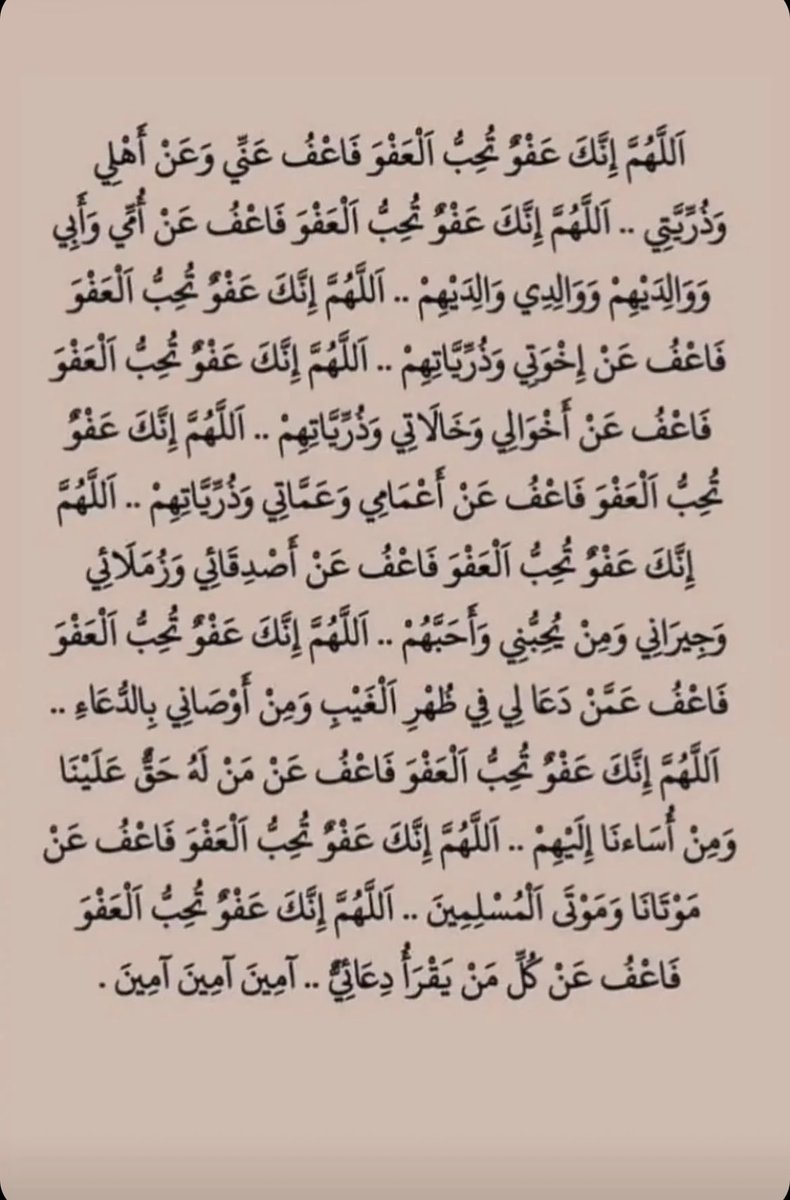 اَللَّهُمَّ إِنَّكَ عَفْوٌ تُحِبُّ اَلْعَفْوَ فَاعْفُ عَنِّي وَعَنْ أَهْلِي
وَذُرِّيَّتِي .. اَللَّهُمَّ إِنَّكَ عَفْوٌ تُحِبُّ اَلْعَفْوَ فَاعْفُ عَنْ أُمِّي وَأَبِي
وَوَالِدَيْهِمْ وَوَالِدِي وَالِدَيْهِمْ .. اَللَّهُمَّ إِنَّكَ عَفْوٌ تُحِبُّ اَلْعَفْوَ
فَاعْفُ عَنْ إِخْوَتِي وَذُرِّيَّاتِهِمْ .. اَللَّهُمَّ إِنَّكَ عَفْوٌ تُحِبُّ اَلْعَفْوَ
فَاعْفُ عَنْ أَخْوَالِي وَخَالَاتِي وَذُرِّيَّاتِهِمْ .. اَللَّهُمَّ إِنَّكَ عَفْوٌ
تُحِبُّ اَلْعَفْوَ فَاعْفُ عَنْ أَعْمَامِي وَعَمَّاتِي وَذُرِّيَّاتِهِمْ .. اَللَّهُمَّ
إِنَّكَ عَفْوٌ تُحِبُّ اَلْعَفْوَ فَاعْفُ عَنْ أَصْدِقَائِي وَزُمَلَائِي
وَجِيرَانِي وَمِنْ يُحِبُّنِي وَأَحَبَّهُمْ .. اَللَّهُمَّ إِنَّكَ عَفْوٌ تُحِبُّ اَلْعَفْوَ
فَاعْفُ عَمَّنْ دَعَا لِي فِي ظُهْرِ اَلْغَيْبِ وَمِنْ أَوْصَانِي بِالدُّعَاءِ ..
اَللَّهُمَّ إِنَّكَ عَفْوٌ تُحِبُّ اَلْعَفْوَ فَاعْفُ عَنْ مَنْ لَهُ حَقٌّ عَلَيْنَا
وَمِنْ أُسَاءنَا إِلَيْهِمْ .. اَللَّهُمَّ إِنَّكَ عَفْوٌ تُحِبُّ اَلْعَفْوَ فَاعْفُ عَنْ
مَوْتَانَا وَمَوْتَى اَلْمُسْلِمِينَ .. اَللَّهُمَّ إِنَّكَ عَفْوٌ تُحِبُّ اَلْعَفْوَ
فَاعْفُ عَنْ كُلِّ مَنْ يَقْرَأُ دِعَائِيٌّ .. آمِينَ آمِينَ آمِينَ .